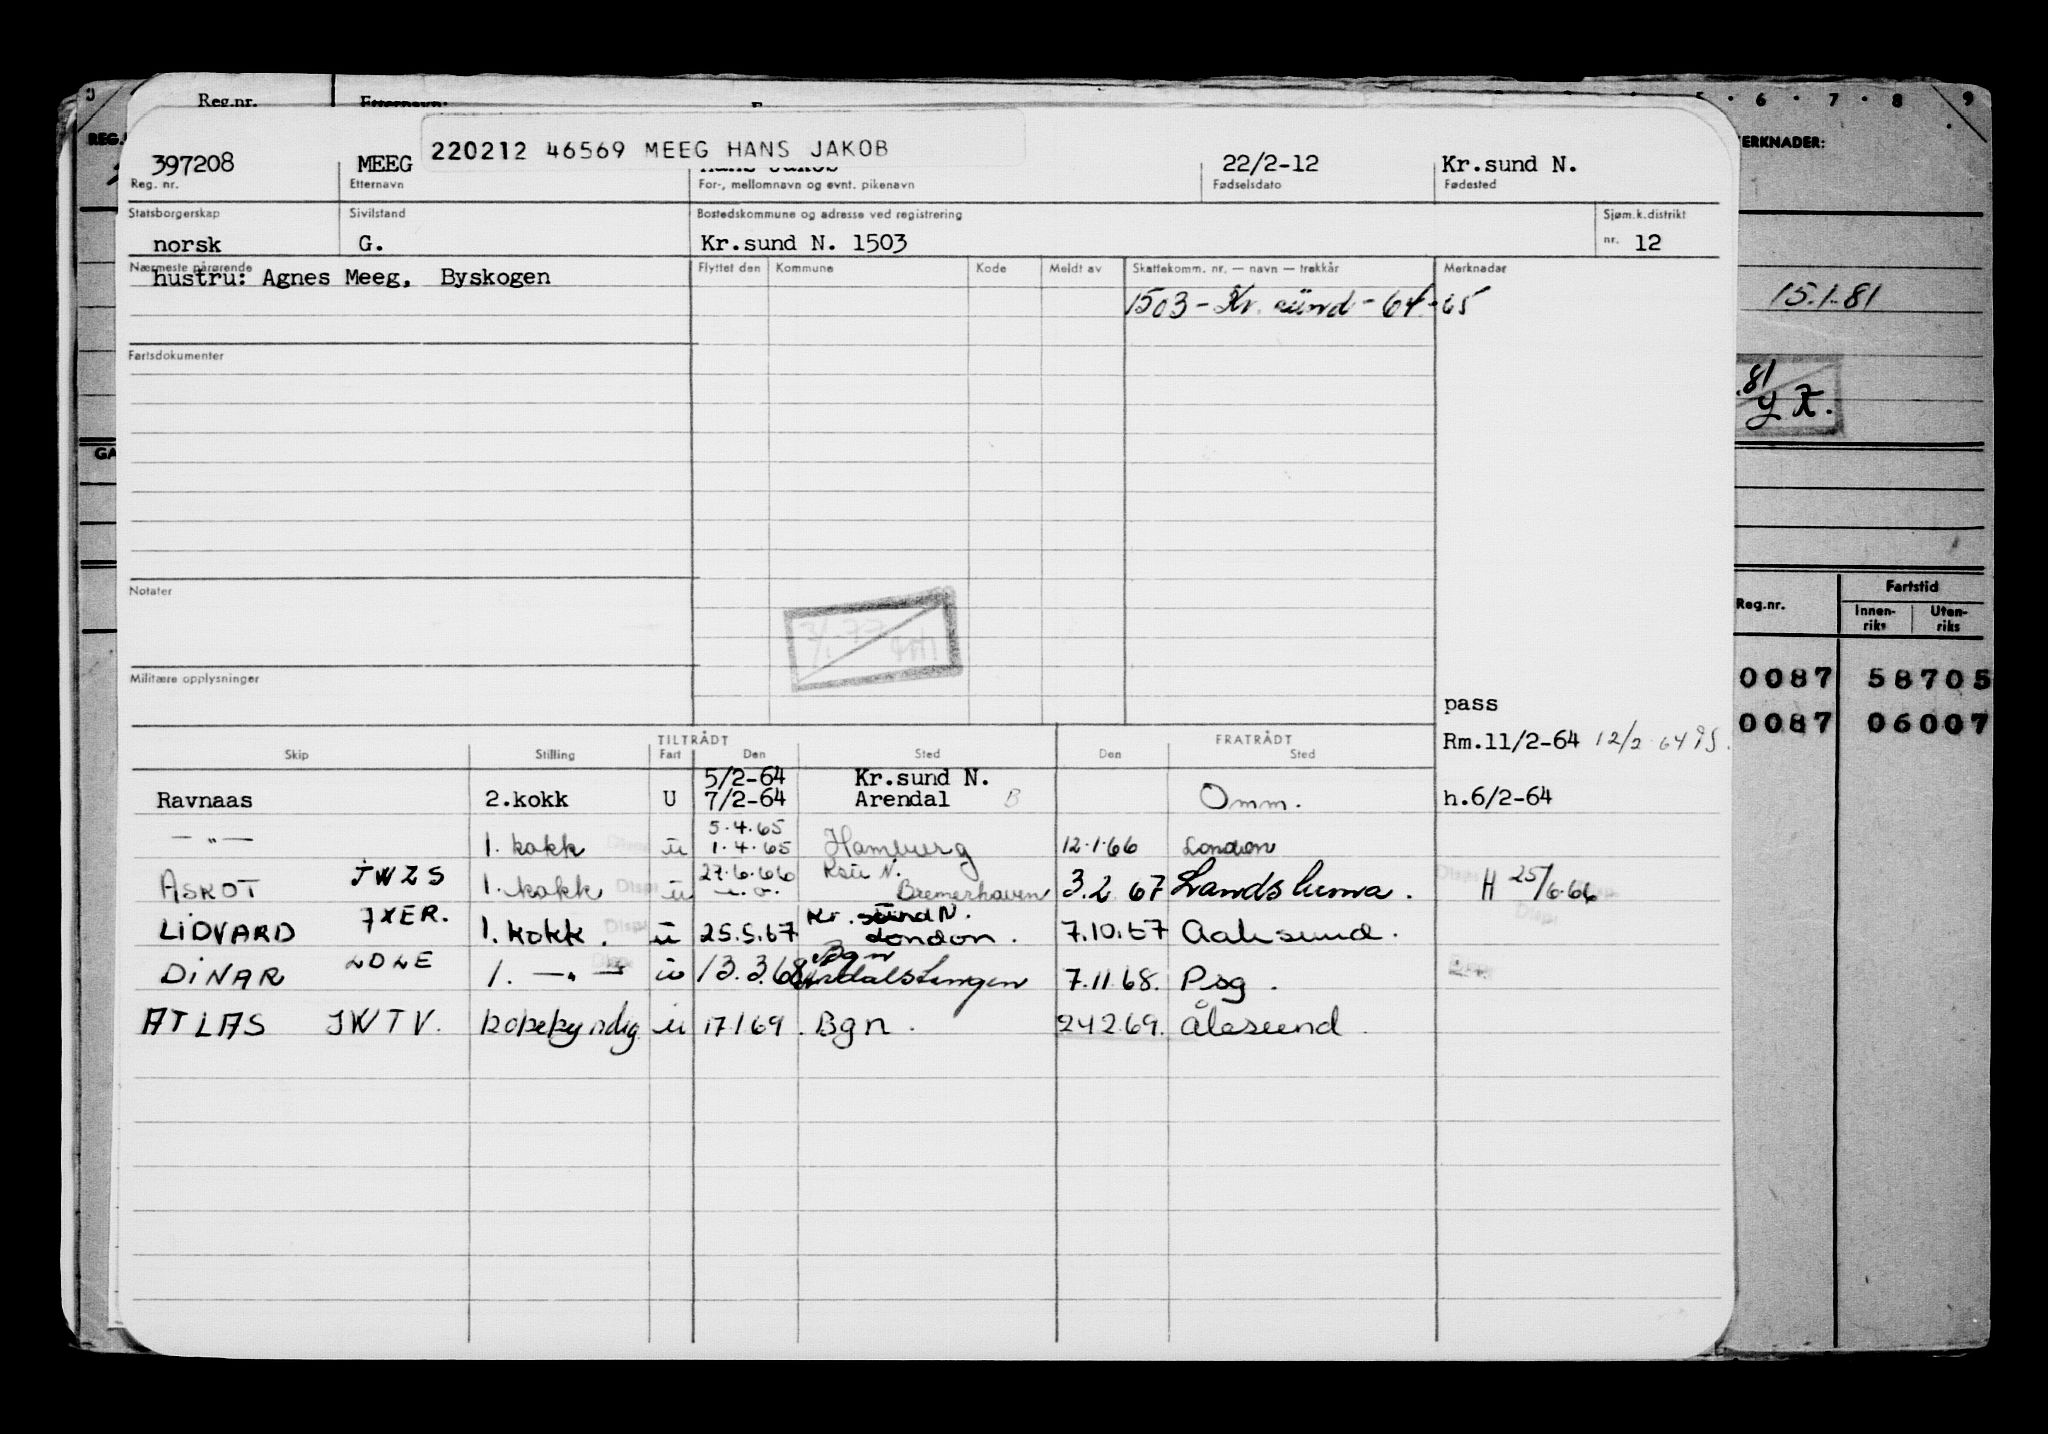 Reg.nr.
REG.
220212 46569 MEEG HANS JAKOB
5 · 6 · 7 · 8 9
MERKNADER:
397208 MEEG 22/2-12 Kr.sund N.
Reg. nr. Etternavn For-, mellomnavn og evnt. pikenavn Fødselsdato Fødested
Statsborgerskap Sivilstand Bostedskommune og adresse ved registrering Sjøm.k.distrikt
norsk G. Kr.sund N. 1503 nr. 12
Nærmeste pårørende Flyttet den Kommune Kode Meldt av Skattekomm. nr. — navn — trekkår Merknader
hustru: Agnes Meeg, Byskogen
1503 - Kr. sund - 64-65
15.1.81
Fartsdokumenter
81
GA
Notater
3/1-77
Militære opplysninger
Reg.nr. Fartstid
Innen-riks Uten-riks
0087 58705
0087 06007
pass
TILTRÅDT FRATRÅDT
Rm.11/2-64 12/2-64
Skip Stilling Fart Den Sted Den Sted
5/2-64 Kr.sund N.
Ravnaas 2.kokk U 7/2-64 Arendal B Omm. h.6/2-64
5.4.65
— " — 1. kokk u 1.4.65 Hamburg 12.1.66 London
27.6.66 Ksu N.
ASKOT JWZS 1. kokk u Bremerhaven 3.2 67 Landskrona. H 25/6-66
Kr. sund N.
LIDVARD JXER. 1. kokk. u 25.5.67 London. 7.10.67 Aalesund.
Bgn
DINAR LDLE 1. — " — u 13.3.68 Årdalstangen 7.11.68. Psg.
ATLAS JWTV. kokekyndig u 17.1.69. Bgn. 24.2.69. Ålesund.